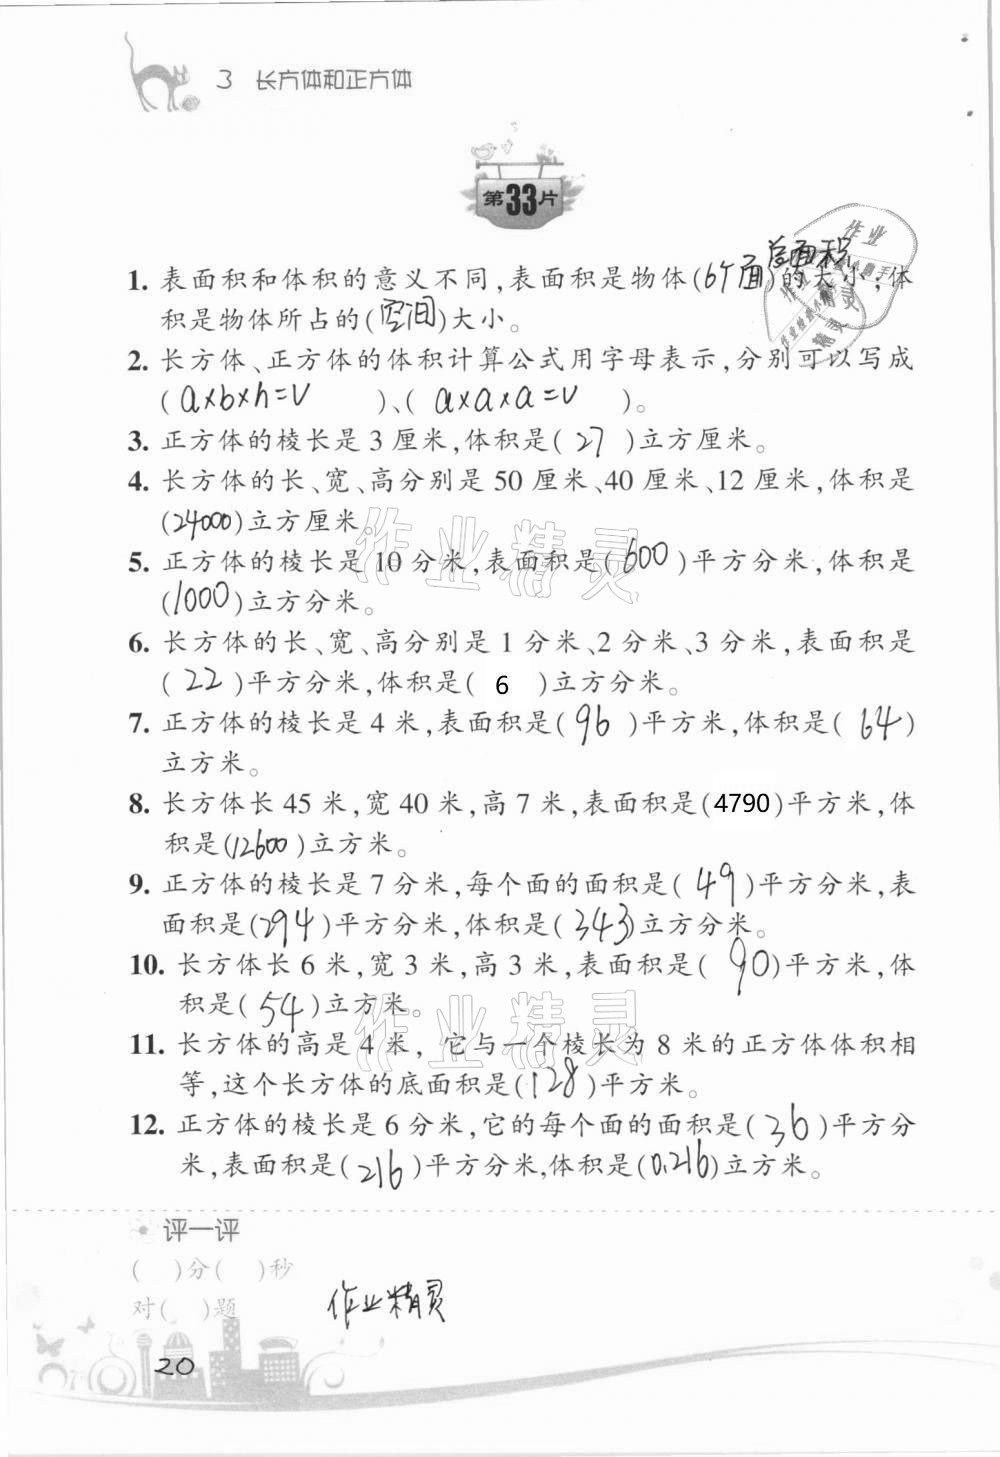 3 长方体和正方体
第33片
总面积
1. 表面积和体积的意义不同,表面积是物体(6个面)的大小;体
积是物体所占的(空间)大小。
2. 长方体、正方体的体积计算公式用字母表示,分别可以写成
(a×b×h=V )、( a×a×a=V )。
3. 正方体的棱长是3厘米,体积是( 27 )立方厘米。
4. 长方体的长、宽、高分别是50厘米、40厘米、12厘米,体积是
(24000)立方厘米。
5. 正方体的棱长是10分米,表面积是(600)平方分米,体积是
(1000)立方分米。
6. 长方体的长、宽、高分别是1分米、2分米、3分米,表面积是
( 22 )平方分米,体积是( 6 )立方分米。
7. 正方体的棱长是4米,表面积是( 96 )平方米,体积是( 64 )
立方米。
8. 长方体长45米,宽40米,高7米,表面积是(4790)平方米,体
积是(12600)立方米。
9. 正方体的棱长是7分米,每个面的面积是( 49 )平方分米,表
面积是(294)平方分米,体积是( 343)立方分米。
10. 长方体长6米,宽3米,高3米,表面积是( 90)平方米,体
积是( 54 )立方米。
11. 长方体的高是4米,它与一个棱长为8米的正方体体积相
等,这个长方体的底面积是(128)平方米。
12. 正方体的棱长是6分米,它的每个面的面积是( 36 )平方分
米,表面积是( 216 )平方分米,体积是(0.216)立方米。
作业精灵
作业精灵
评一评
( )分( )秒
对( )题
作业精灵
20